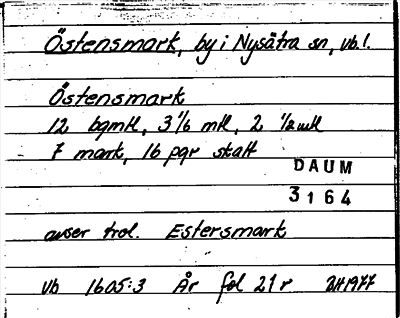 Östensmark, by i Nysätra sn, vb.l.
Östensmark
12 bgmtl, 3 1/6 mtl, 2 1/2 mtl
7 mark, 16 pgr skatt
DAUM
3164
avser trol. Estersmark
Vb 1605:3 År fol 21 r 1977